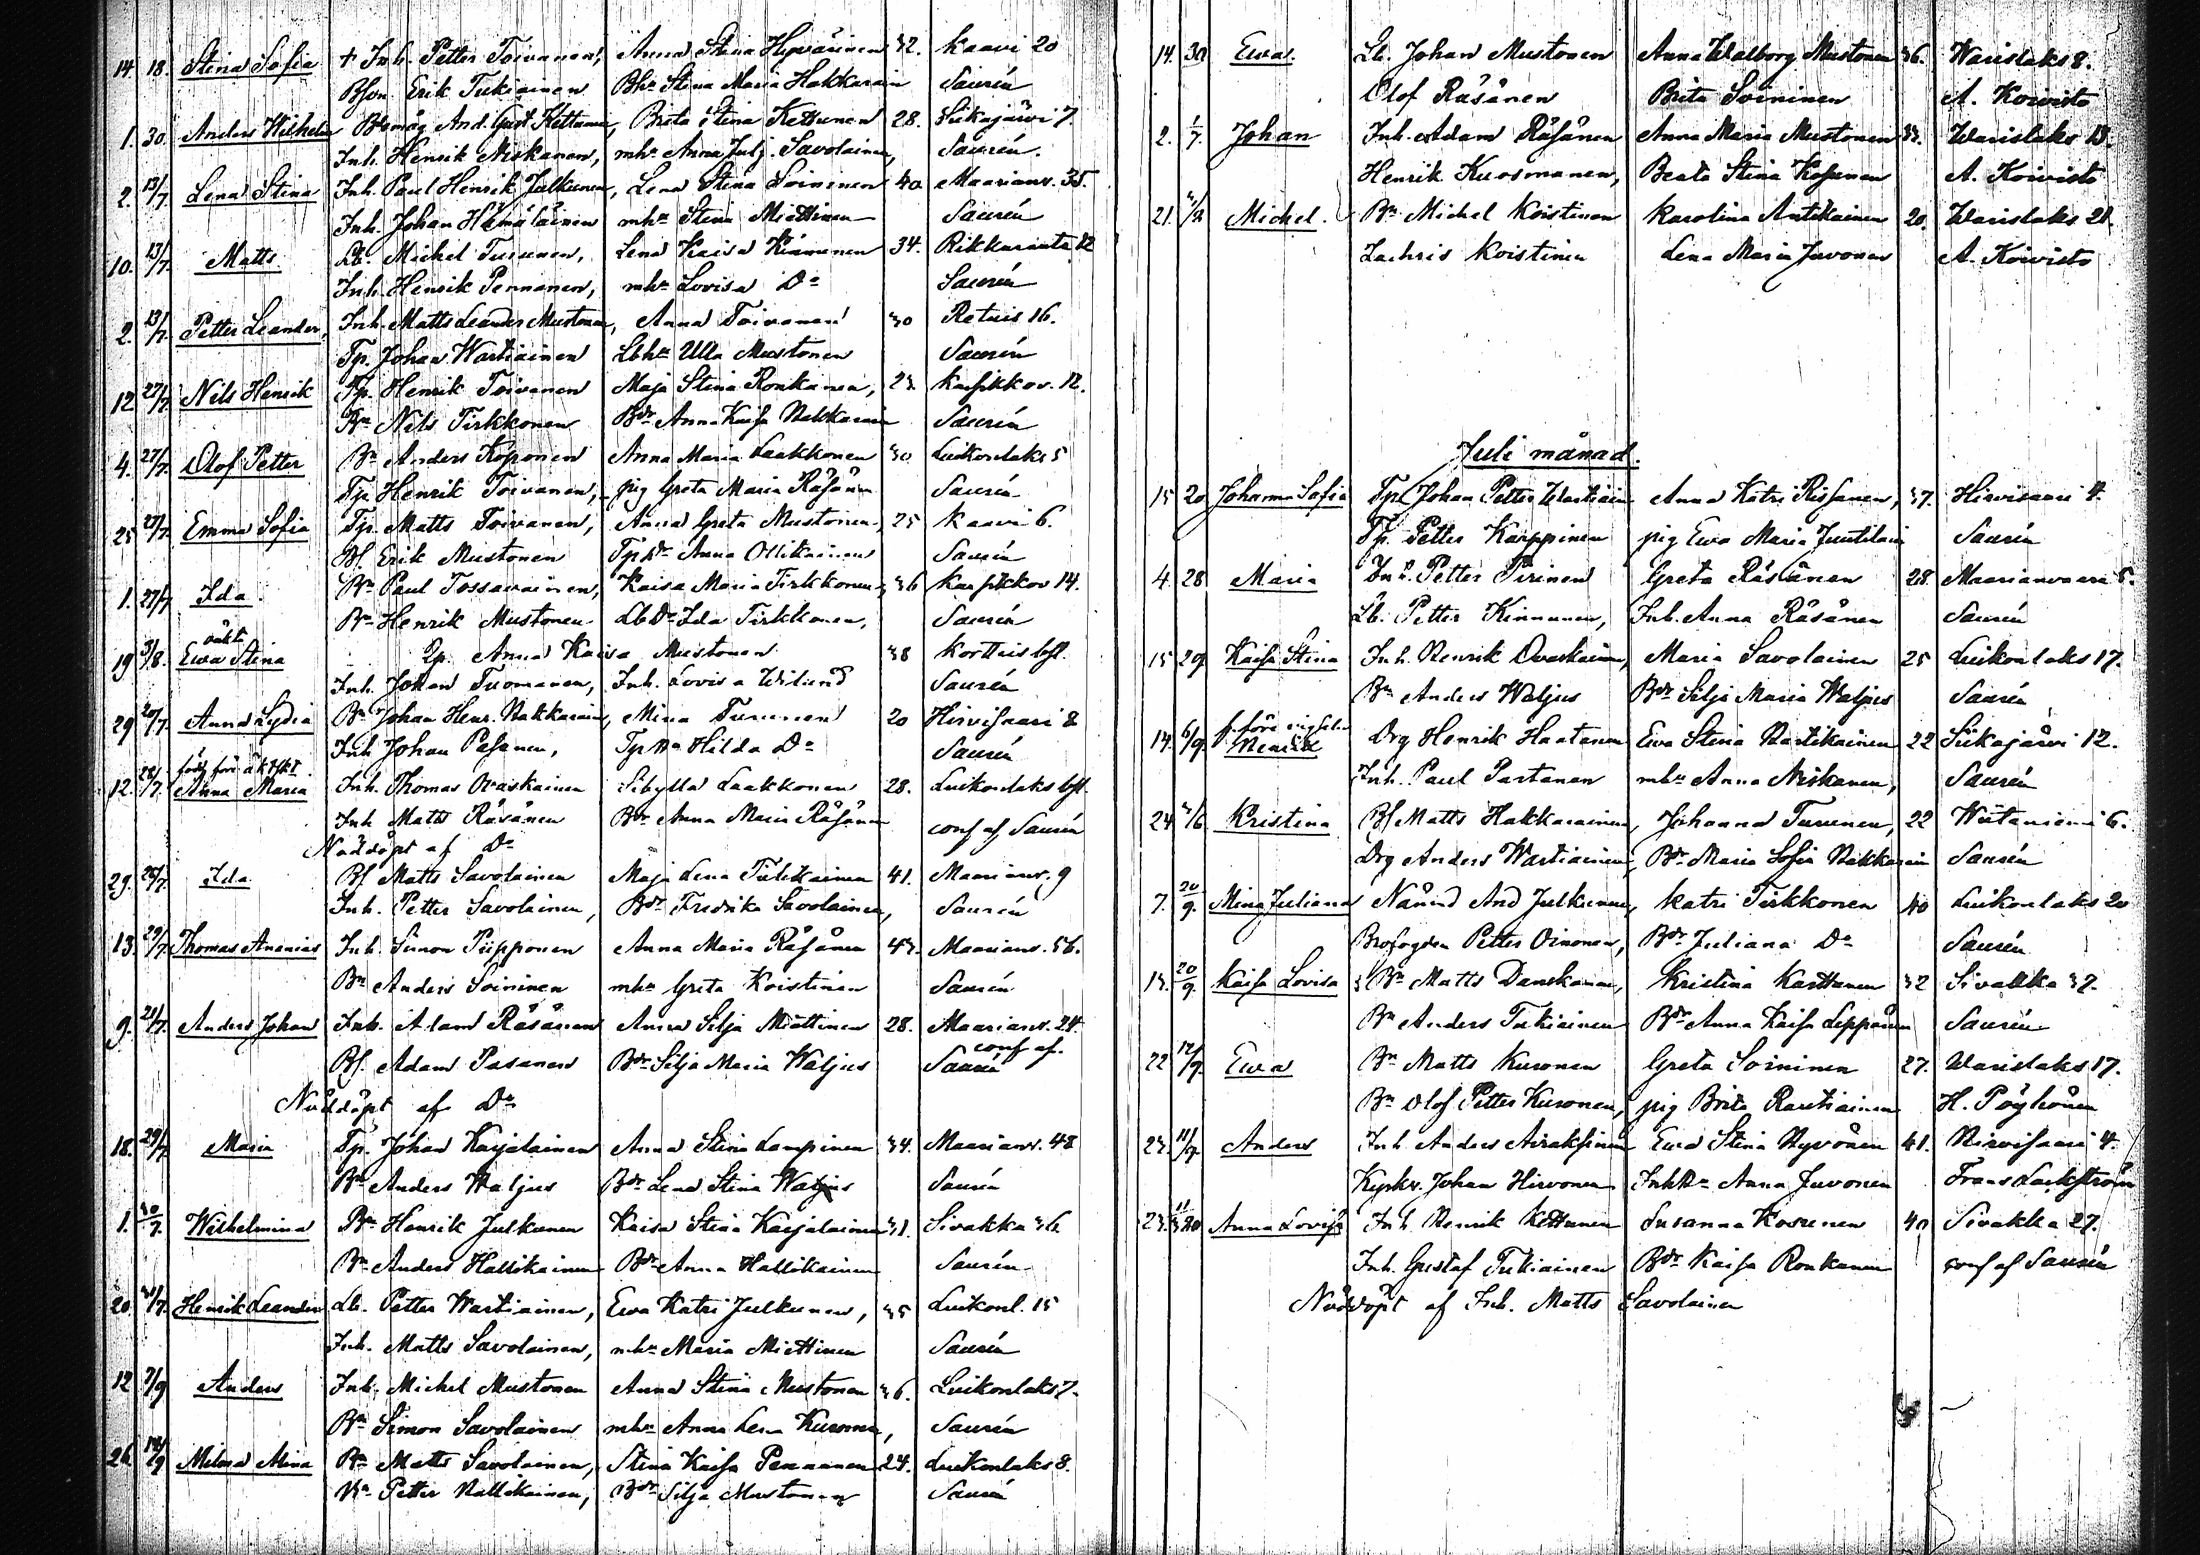 14. 18. Stina Sofia + Inh. Petter Toivanen, Anna Stina Hyvärinen 32. Kaavi 20
Bson. Erik Tukiainen Bhr Stina Maria Hakkarain Saurén
1. 30. Anders Wilhelm Bmåg And. Gust. Kettunen, Brita Stina Kettunen 28. Siikajärvi 7.
Inh. Henrik Niskanen, mhr Anna Julj. Savolainen, Saurén.
2. 13/7. Lena Stina Inh. Paul Henrik Julkunen, Lena Stina Soininen 40 Maarianv. 35.
Inh. Johan Hämäläinen mhr Stina Miettinen Saurén
10. 13/7. Matts Lb. Michel Turunen, Lena Kaisa Kinnunen 34. Rikkaranta 12
Inh. Henrik Pennanen, mhr Lovisa Do Saurén
2. 13/7. Petter Leander, Inh. Matts Leander Mustonen, Anna Toivanen 30 Retuis 16.
Tp. Johan Wartiainen Lbhr Ulla Mustonen Saurén
12 27/7. Nils Henrik Tp. Henrik Toivanen Maja Stina Ronkanen, 23. Karsikkov. 12.
Bn Nils Tirkkonen Bdr Anna Kaisa Hakkarain Saurén
4. 27/7. Olof Petter Bn Anders Koponen Anna Maria Laakkonen 30 Luikonlaks 5
Tp. Henrik Toivanen, pig Greta Maria Räsänen Saurén
25 27/7. Emma Sofia Tp. Matts Toivanen, Anna Greta Mustonen, 25 Kaavi 6.
Bs. Erik Mustonen Tp.Dr Anna Ollikainen Saurén
1. 27/7 Ida Bn Paul Tossavainen, Kaisa Maria Tirkkonen 36 Karsikkov 14.
Bn Henrik Mustonen Lb Dr Ida Tirkkonen, Saurén
19 3/8. oäkta Ewa Stina Qp. Anna Kaisa Mustonen 38 Korttris lösl.
Inh. Johan Tuomanen, Inh. Lovisa Wilund Saurén
29 20/7 Anna Lydia Bn Johan Henr. Hakkarain, Mina Turunen 20 Hirvisaari 8
Inh Johan Pasanen, Tp Dr Hilda Do Saurén
född före äktskt.
12. 28/7. Anna Maria Inh. Thomas Ovaskainen Sibylla Laakkonen 28. Luikonlaks lösl.
Inh Matts Räsänen Bdr Anna Maria Räsänen conf af Saurén
Nöddöpt af Do
29. 28/7. Ida Bs Matts Savolainen Maja Lena Tiilikainen 41. Maarianv. 9
Inh. Petter Savolainen, Bdr Fredrika Savolainen, Saurén
13. 29/7. Thomas Ananias Inh. Simon Piipponen Anna Maria Räsänen 43. Maarianv. 56.
Bn Anders Soininen mhr Greta Koistinen Saurén
9. 21/7. Anders Johan Inh. Adam Räsänen Anna Silja Miettinen 28. Maarianv. 24.
Bs. Adam Pasanen Bdr Silja Maria Waljus conf af. Saurén
Nöddöpt af Do
18. 29/7 Maria Tp. Johan Karjalainen Anna Stina Lampinen 34. Maarianv. 48
Bn Anders Waljus Bdr Lena Stina Waljus Saurén
1. 30/7. Wilhelmina Bn Henrik Julkunen Kaisa Stina Karjalainen 31. Sivakka 36
Bn Anders Hallikainen Bdr Anna Hallikainen Saurén
20. 31/7. Henrik Leander Lb. Petter Wartiainen, Ewa Katri Julkunen, 35 Luikonl. 15
Inh. Matts Savolainen, mhr Maria Miettinen Saurén
12 7/9 Anders Inh. Michel Mustonen Anna Stina Mustonen 36. Luikonlaks 7.
Bn Simon Savolainen mhr Anna Lena Kuronen, Saurén
26. Milma Mina Bn Matts Savolainen, Stina Kaisa Pennanen 24. Luikonlaks 8.
Bn Petter Hallikainen, Bdr Silja Mustonen Saurén
14. 30 Ewa. Lb. Johan Mustonen Anna Walborg Mustonen 36. Warislaks 8.
Olof Räsänen Brita Soininen A. Koivisto
2. 1/7. Johan Inh. Adam Räsånen Anna Maria Mustonen 33. Warislaks 13.
Henrik Kuosmanen, Beata Stina Kosunen A. Koivisto
21. Michel. Bn Michel Koistinen Karolina Antikainen 20. Warislaks 21.
Zachris Koistinen Lena Maria Juvonen A. Koivisto
Juli månad.
15 20 Johanna Sofia Tp. Johan Petter Wartiain Anna Katri Rissanen, 37. Hirvisaari 4.
Tp. Petter Karppinen pig Ewa Maria Juntilain Saurén
4. 28 Maria Inh. Petter Pirinen Greta Räsänen 28. Maarianvaara 5.
Lb. Petter Kinnunen, Inh. Anna Räsänen Saurén
15 29. Kaisa Stina Inh. Henrik Ovaskainen, Maria Savolainen 25 Luikonlaks 17.
Bn Anders Waljus Bdr Silja Maria Waljus Saurén
14. 6/9 f. före vigseln Henrik Drg Henrik Haatanen Ewa Stina Hartikainen 22 Siikajärvi 12.
Inh. Paul Partanen mhr Anna Niskanen, Saurén
24 Kristina Bs Matts Hakkarainen, Johanna Turunen, 22 Wiitaniemi 6.
Drg Anders Wartiainen, Bdr Maria Sofia Hakkarain Saurén
7. 20/9. Mina Juliana Nämnd And Julkunen, Katri Tirkkonen 40 Luikonlaks 20
Brofogden Petter Oinonen, Bdr Juliana Do Saurén
13. 20/9. Kaisa Lovisa Bn Matts Danskanen, Kristina Karttunen 32 Sivakka 37.
Bn Anders Tukiainen Bdr Anna Kaisa Leppänen Saurén
22 12/9. Ewa Bn Matts Kuronen Greta Soininen 27. Warislaks 17.
Bn Olof Petter Kuronen, pig Brita Rautiainen H. Pöyhönen
23. 11/9. Anders Inh Anders Airaksinen Ewa Stina Hyvönen 41. Hirvisaari 4.
Kyrkv. Johan Hirvonen InhDr Anna Juvonen Frans Lackström
23. Anna Lovisa Inh. Henrik Kettunen Susanna Kosunen 40 Sivakka 27.
Inh. Gustaf Tukiainen Bdr Kaisa Ronkanen conf af Saurén
Nöddöpt af Inh. Matts Savolainen